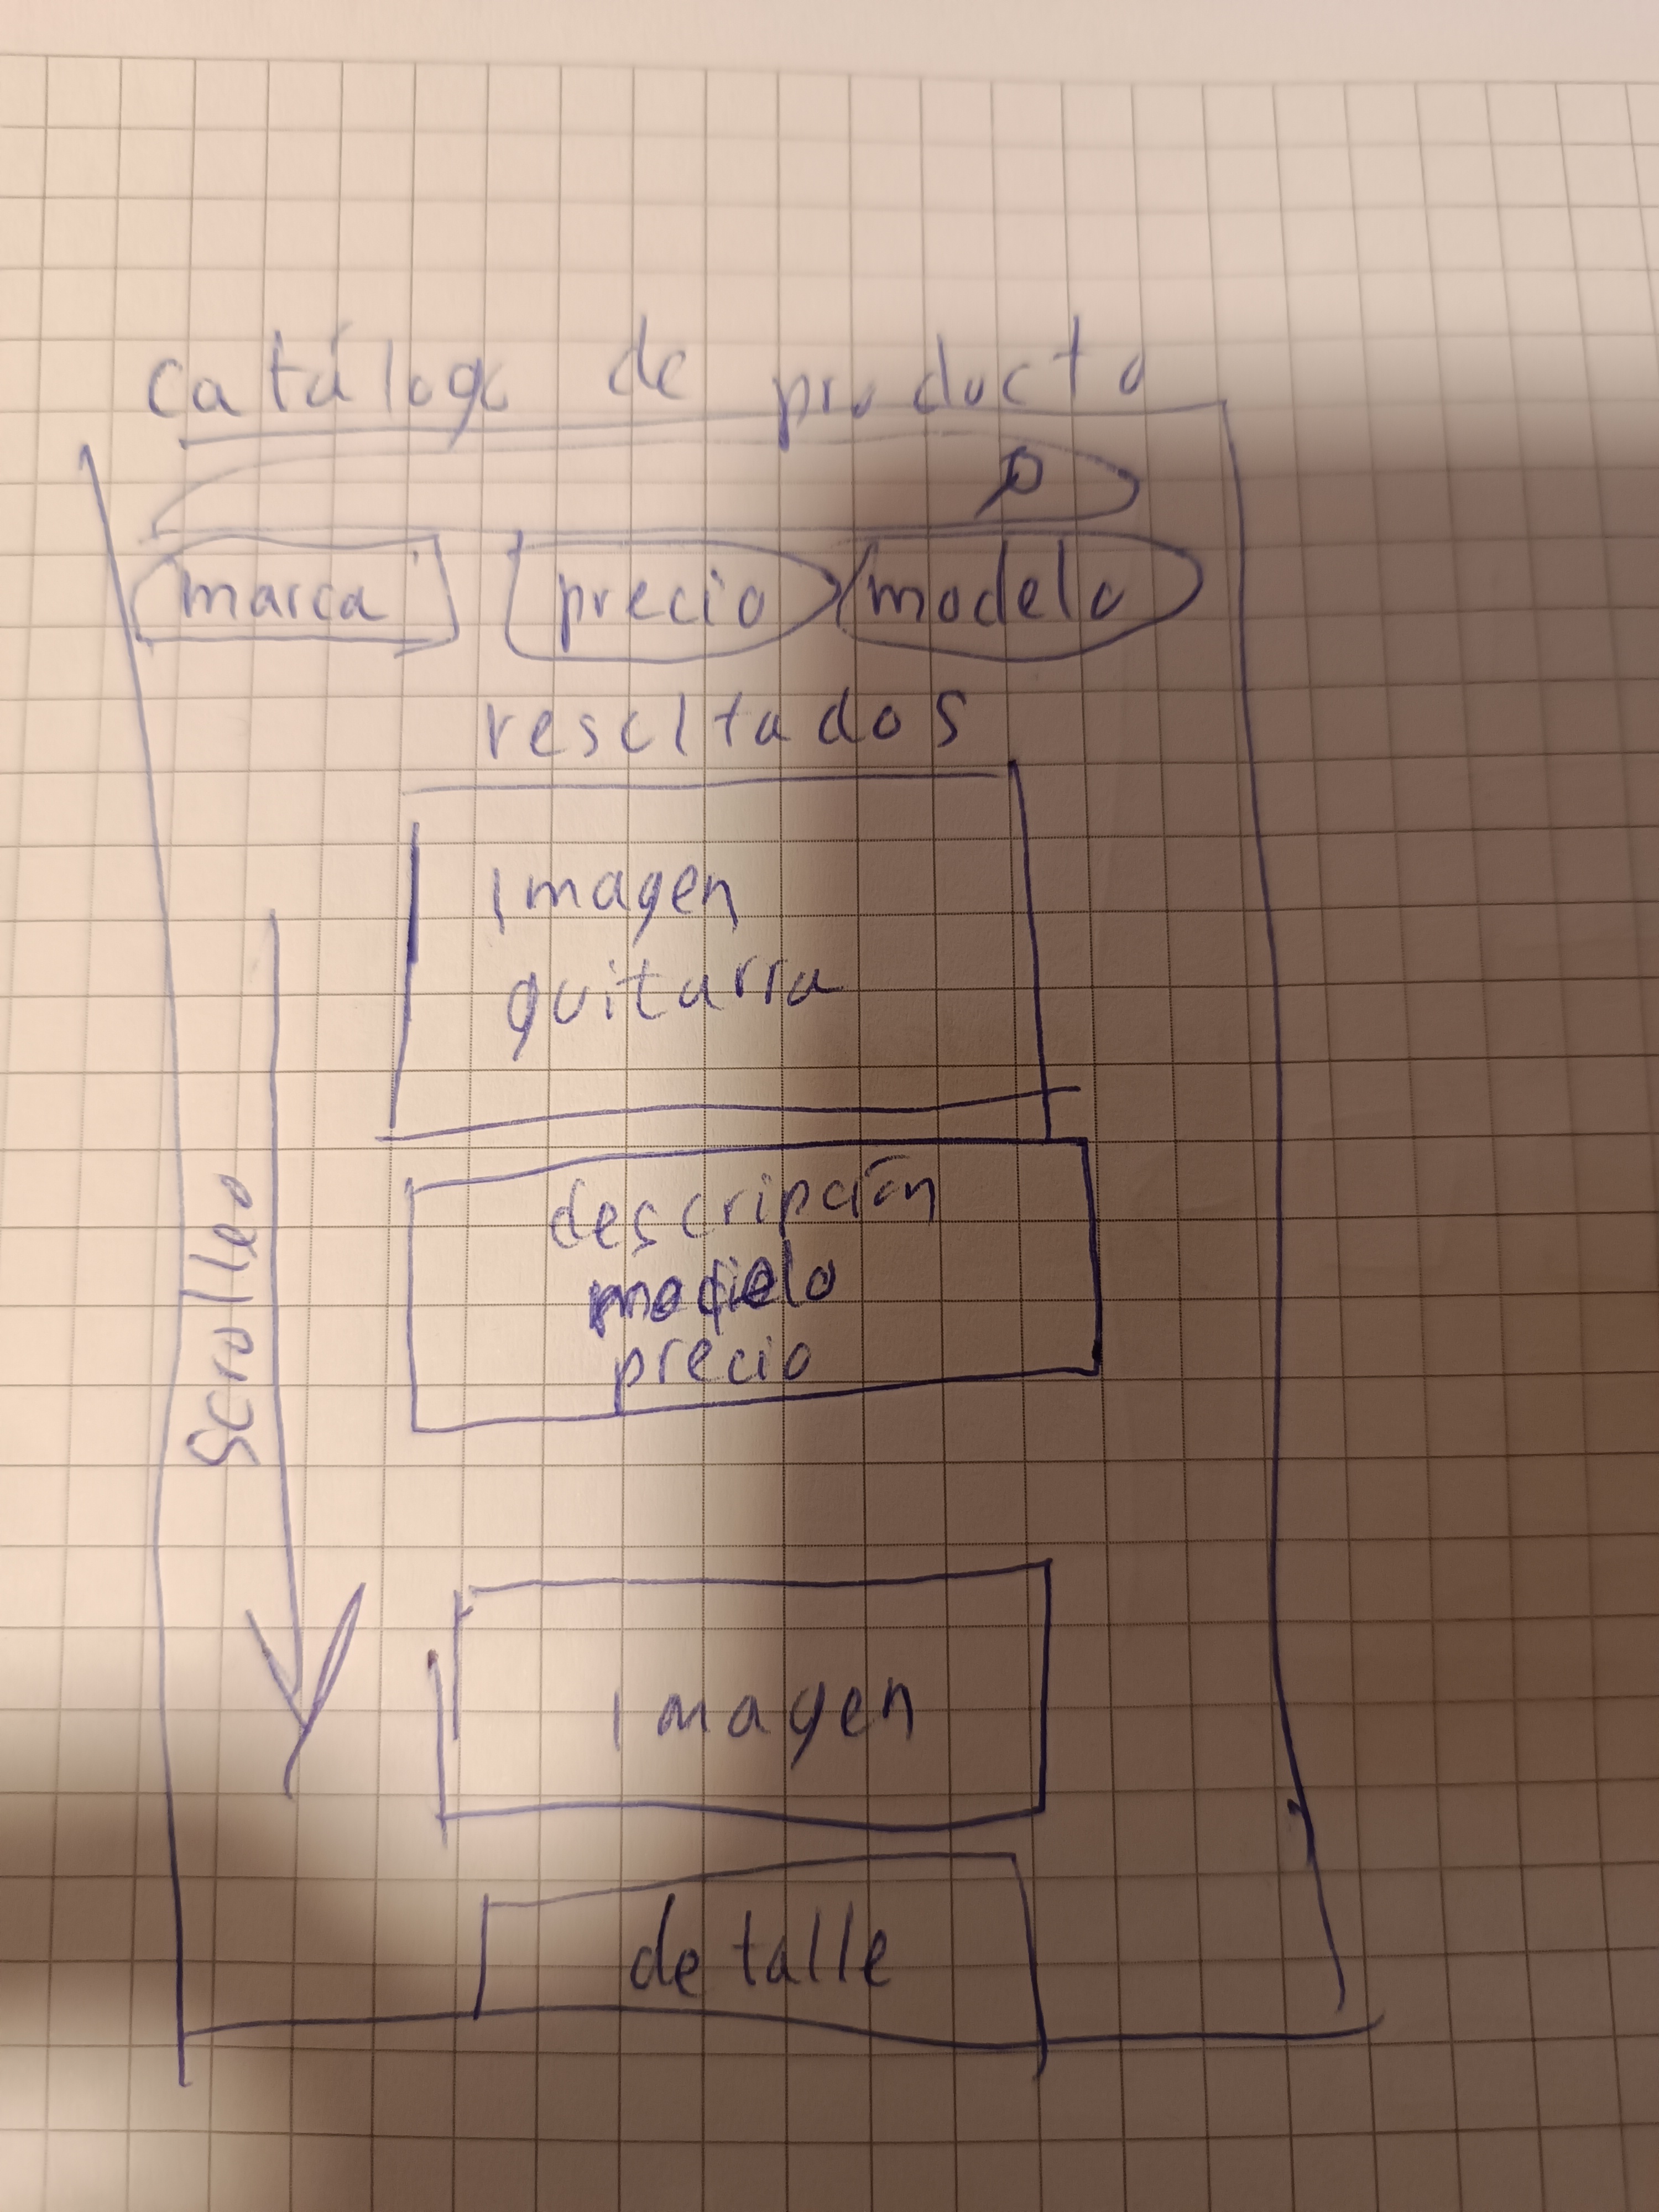 catálogo de producto
marca precio modelo
rescltados
imagen
guitarra
descripción
modelo
precio
Scrolleo
imagen
detalle